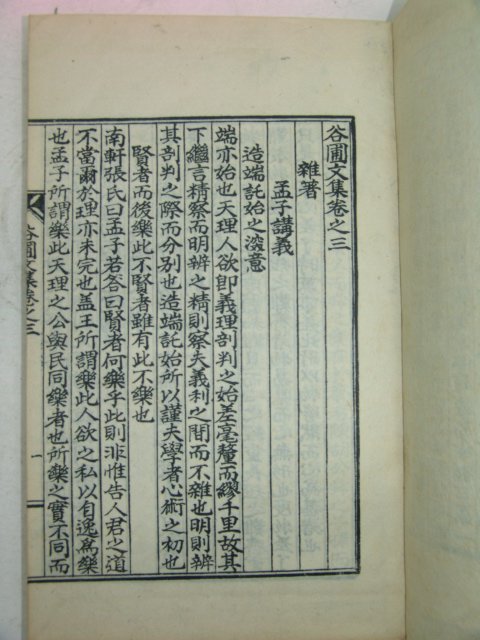 谷圃文集卷之三
雜著
孟子講義
造端託始之深意
端亦始也天理人欲卽義理剖判之始差毫釐而繆千里故其
下繼言精察而明辨之精則察夫義利之間而不雜也明則辨
其剖判之際而分別也造端託始所以謹夫學者心術之初也
賢者而後樂此不賢者雖有此不樂也
南軒張氏曰孟子若答曰賢者何樂乎此則非惟告人君之道
不當爾於理亦未完也盖王所謂樂此人欲之私以自逸爲樂
也孟子所謂樂此天理之公與民同樂者也所樂之實不同而
谷圃文集卷之三
一